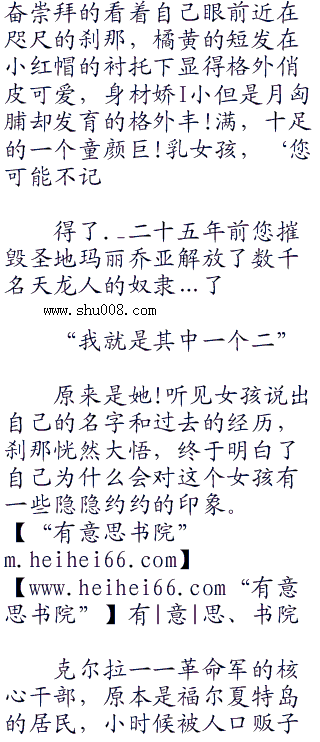 奋崇拜的看着自己眼前近在
咫尺的刹那，橘黄的短发在
小红帽的衬托下显得格外俏
皮可爱，身材娇I小但是月匈
脯却发育的格外丰!满，十足
的一个童颜巨!乳女孩，‘您
可能不记
得了._二十五年前您摧
毁圣地玛丽乔亚解放了数千
名天龙人的奴隶…了
www.shu008.com
“我就是其中一个二”
原来是她!听见女孩说出
自己的名字和过去的经历，
刹那恍然大悟，终于明白了
自己为什么会对这个女孩有
一些隐隐约约的印象。
【“有意思书院”
m.heihei66.com】
【www.heihei66.com“有意
思书院”】有|意|思、书院
克尔拉一一革命军的核
心干部，原本是福尔夏特岛
的居民，小时候被人口贩子